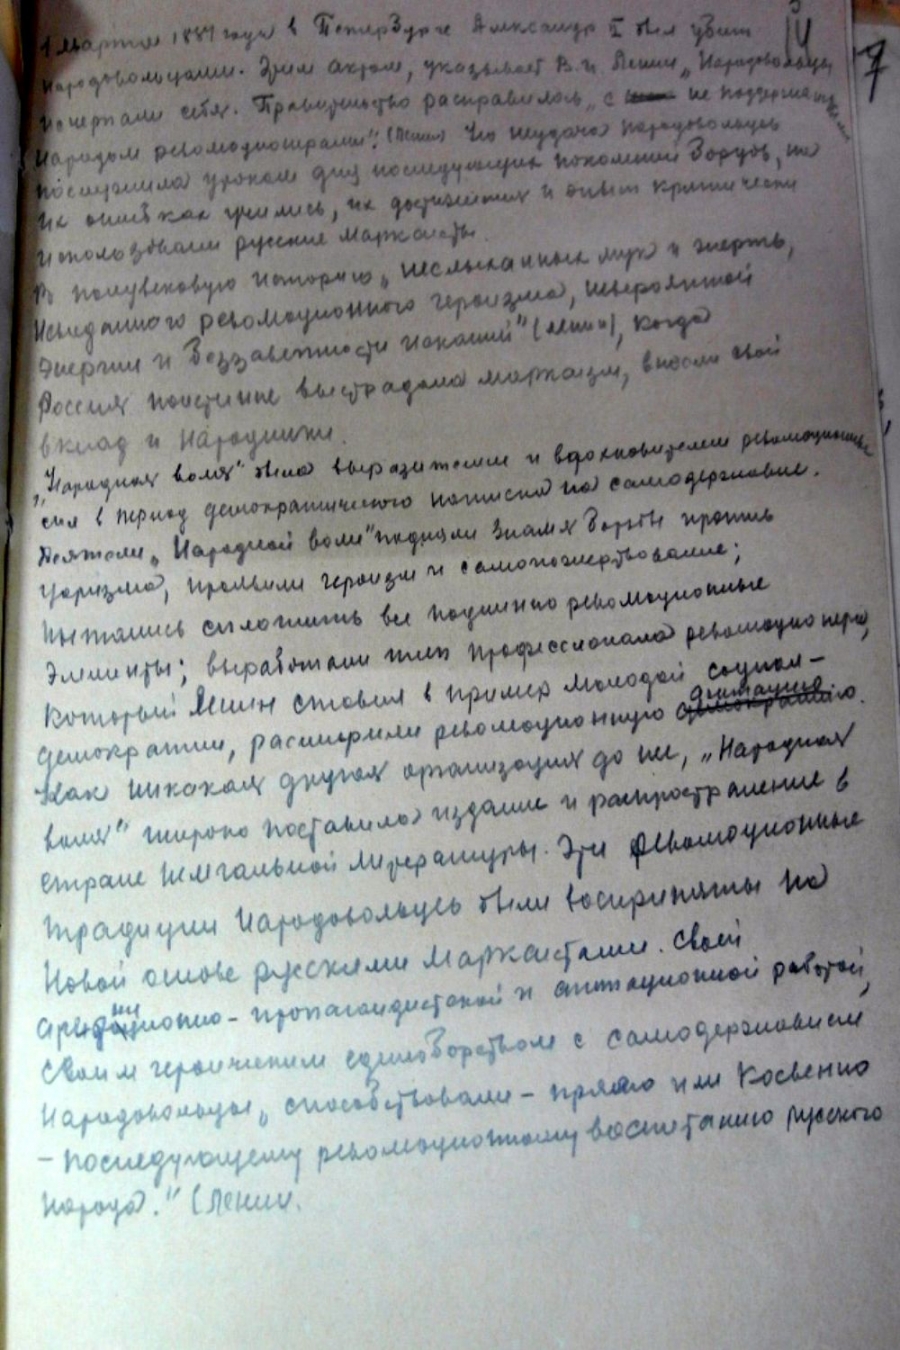 1 марта 1881 года в Петербурге Александр II был убит
народовольцами. Этим актом, указывает В. И. Ленин „Народовольцы
исчерпали себя. Правительство расправилось „с не поддержанными
народом революционерами". (Ленин) Но неудача народовольцев
послужила уроком для последующих поколений борцов, на
их ошибках учились, их достижения и опыт критически
использовали русские марксисты.
В полувековую историю „неслыханных мук и жертв,
невиданного революционного героизма, невероятной
энергии и беззаветности исканий" (Ленин), когда
Россия поистине выстрадала марксизм, внесли свой
вклад и народники.
„Народная воля" была выразителем и вдохновителем революционных
сил в период демократического натиска на самодержавие.
Деятели „Народной воли" подняли знамя борьбы против
царизма, проявили героизм и самопожертвование;
пытались сплотить все подлинно революционные
элементы; выработали тип профессионала революционера,
который Ленин ставил в пример молодой социал-
демократии, расширили революционную агитацию.
Как никакая другая организация до неё, „Народная
воля" широко поставила издание и распространение в
стране нелегальной литературы. Эти революционные
традиции народовольцев были восприняты на
новой основе русскими марксистами. Своей
- пропагандистской и агитационной работой,
своим героическим единоборством с самодержавием
народовольцы „способствовали - прямо или косвенно
- последующему революционному воспитанию русского
народа." (Ленин.
14
7